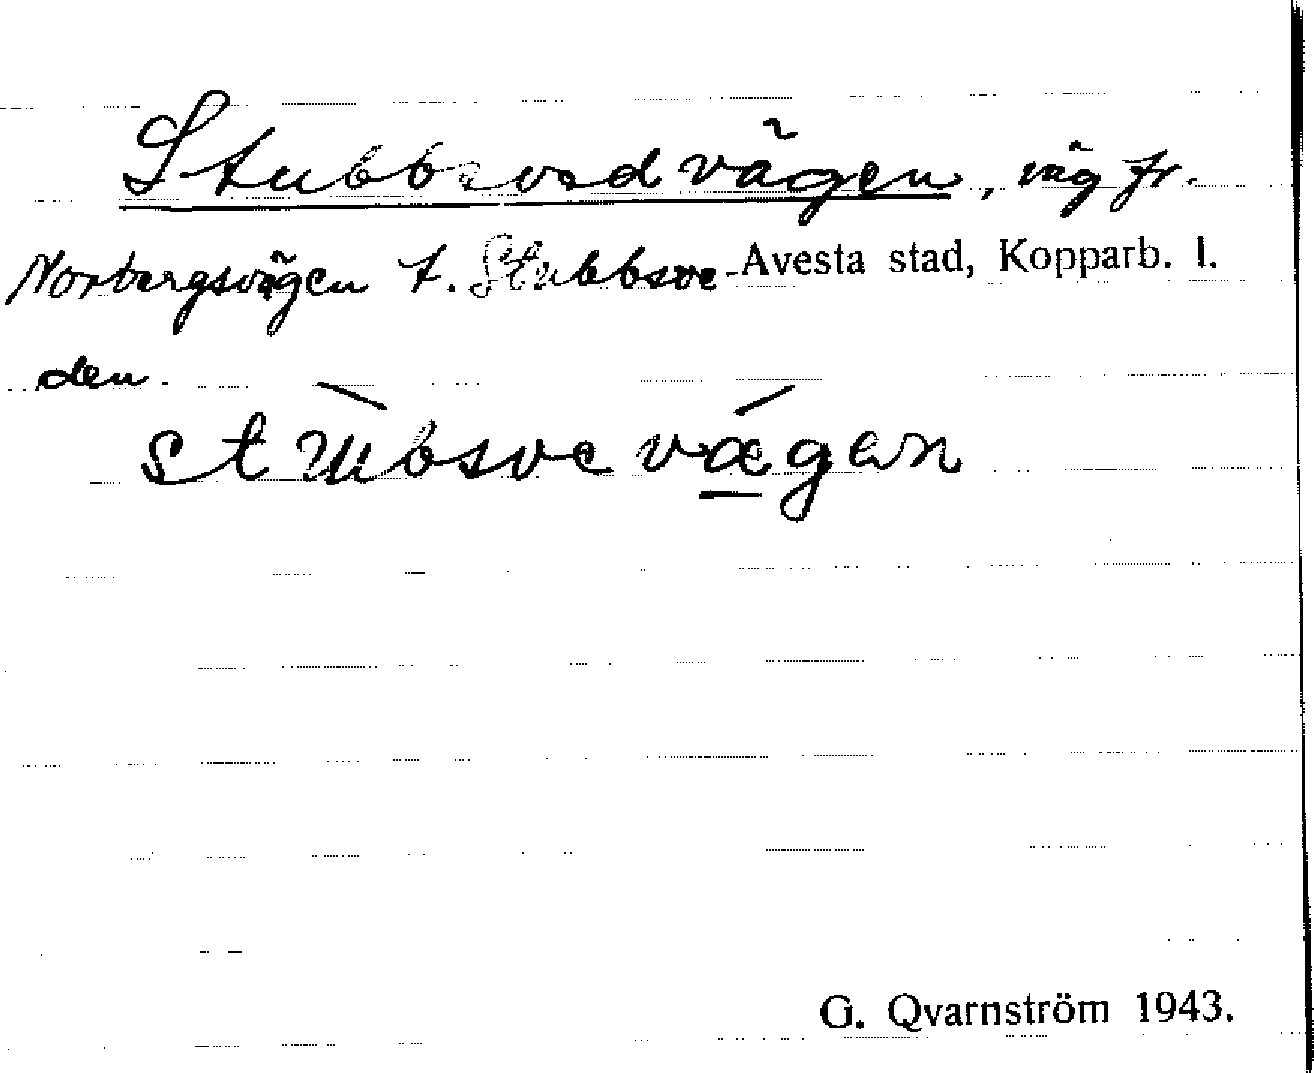 Stubbsvedvägen, väg fr.
Norbergsvägen t. Stubbsve-
Avesta stad, Kopparb. l.
den.
stùbsvevǽgen
G. Qvarnström 1943.